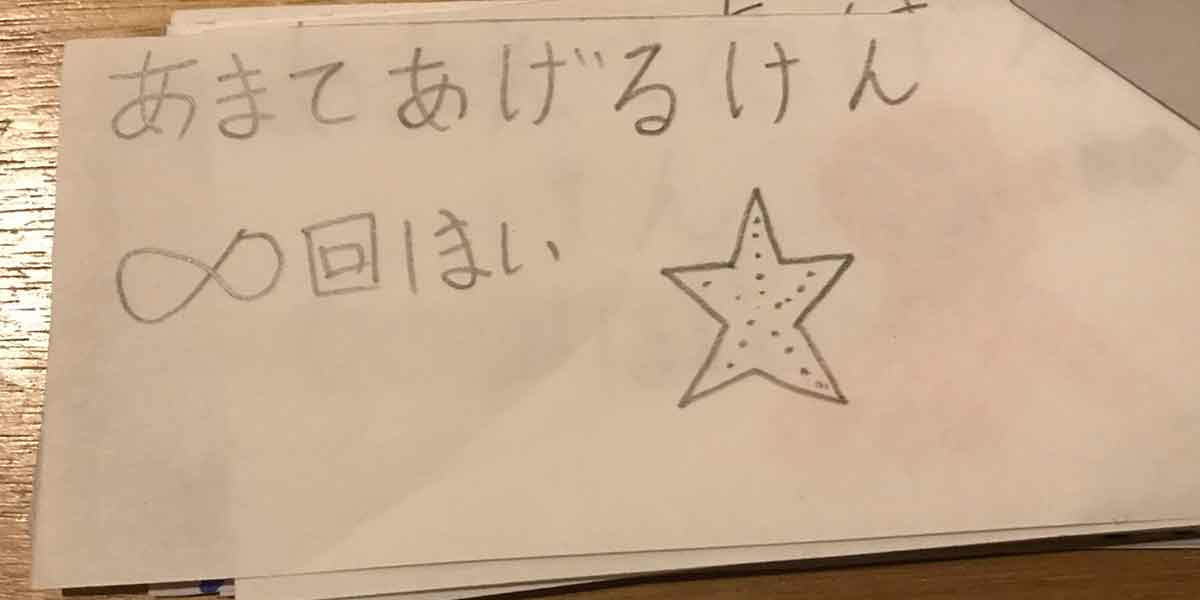 あまてあげるけん
∞回ほい